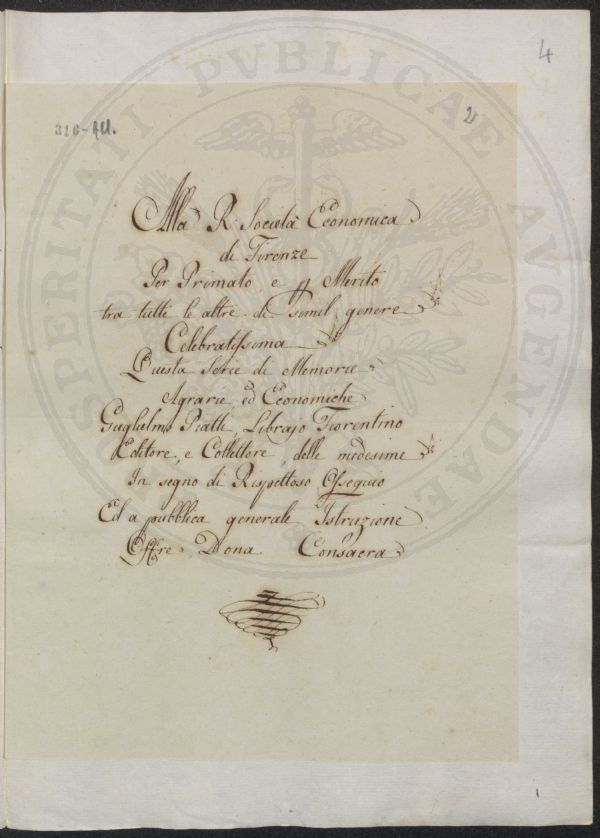 4
2
316-All.
Alla R. Società Economica
di Firenze
Per Primato, e Merito
tra tutti le altre di simil genere
Celebratissima
Questa Serie di Memorie
Agrarie ed Economiche
Guglielmo Piatti, Librajo Fiorentino
Editore, e Collettore delle medesime
In segno di Rispettoso Ossequio
Ed a pubblica generale Istruzione
Offre Dona Consacra
PROSPERITATI PVBLICAE AVGENDAE
1